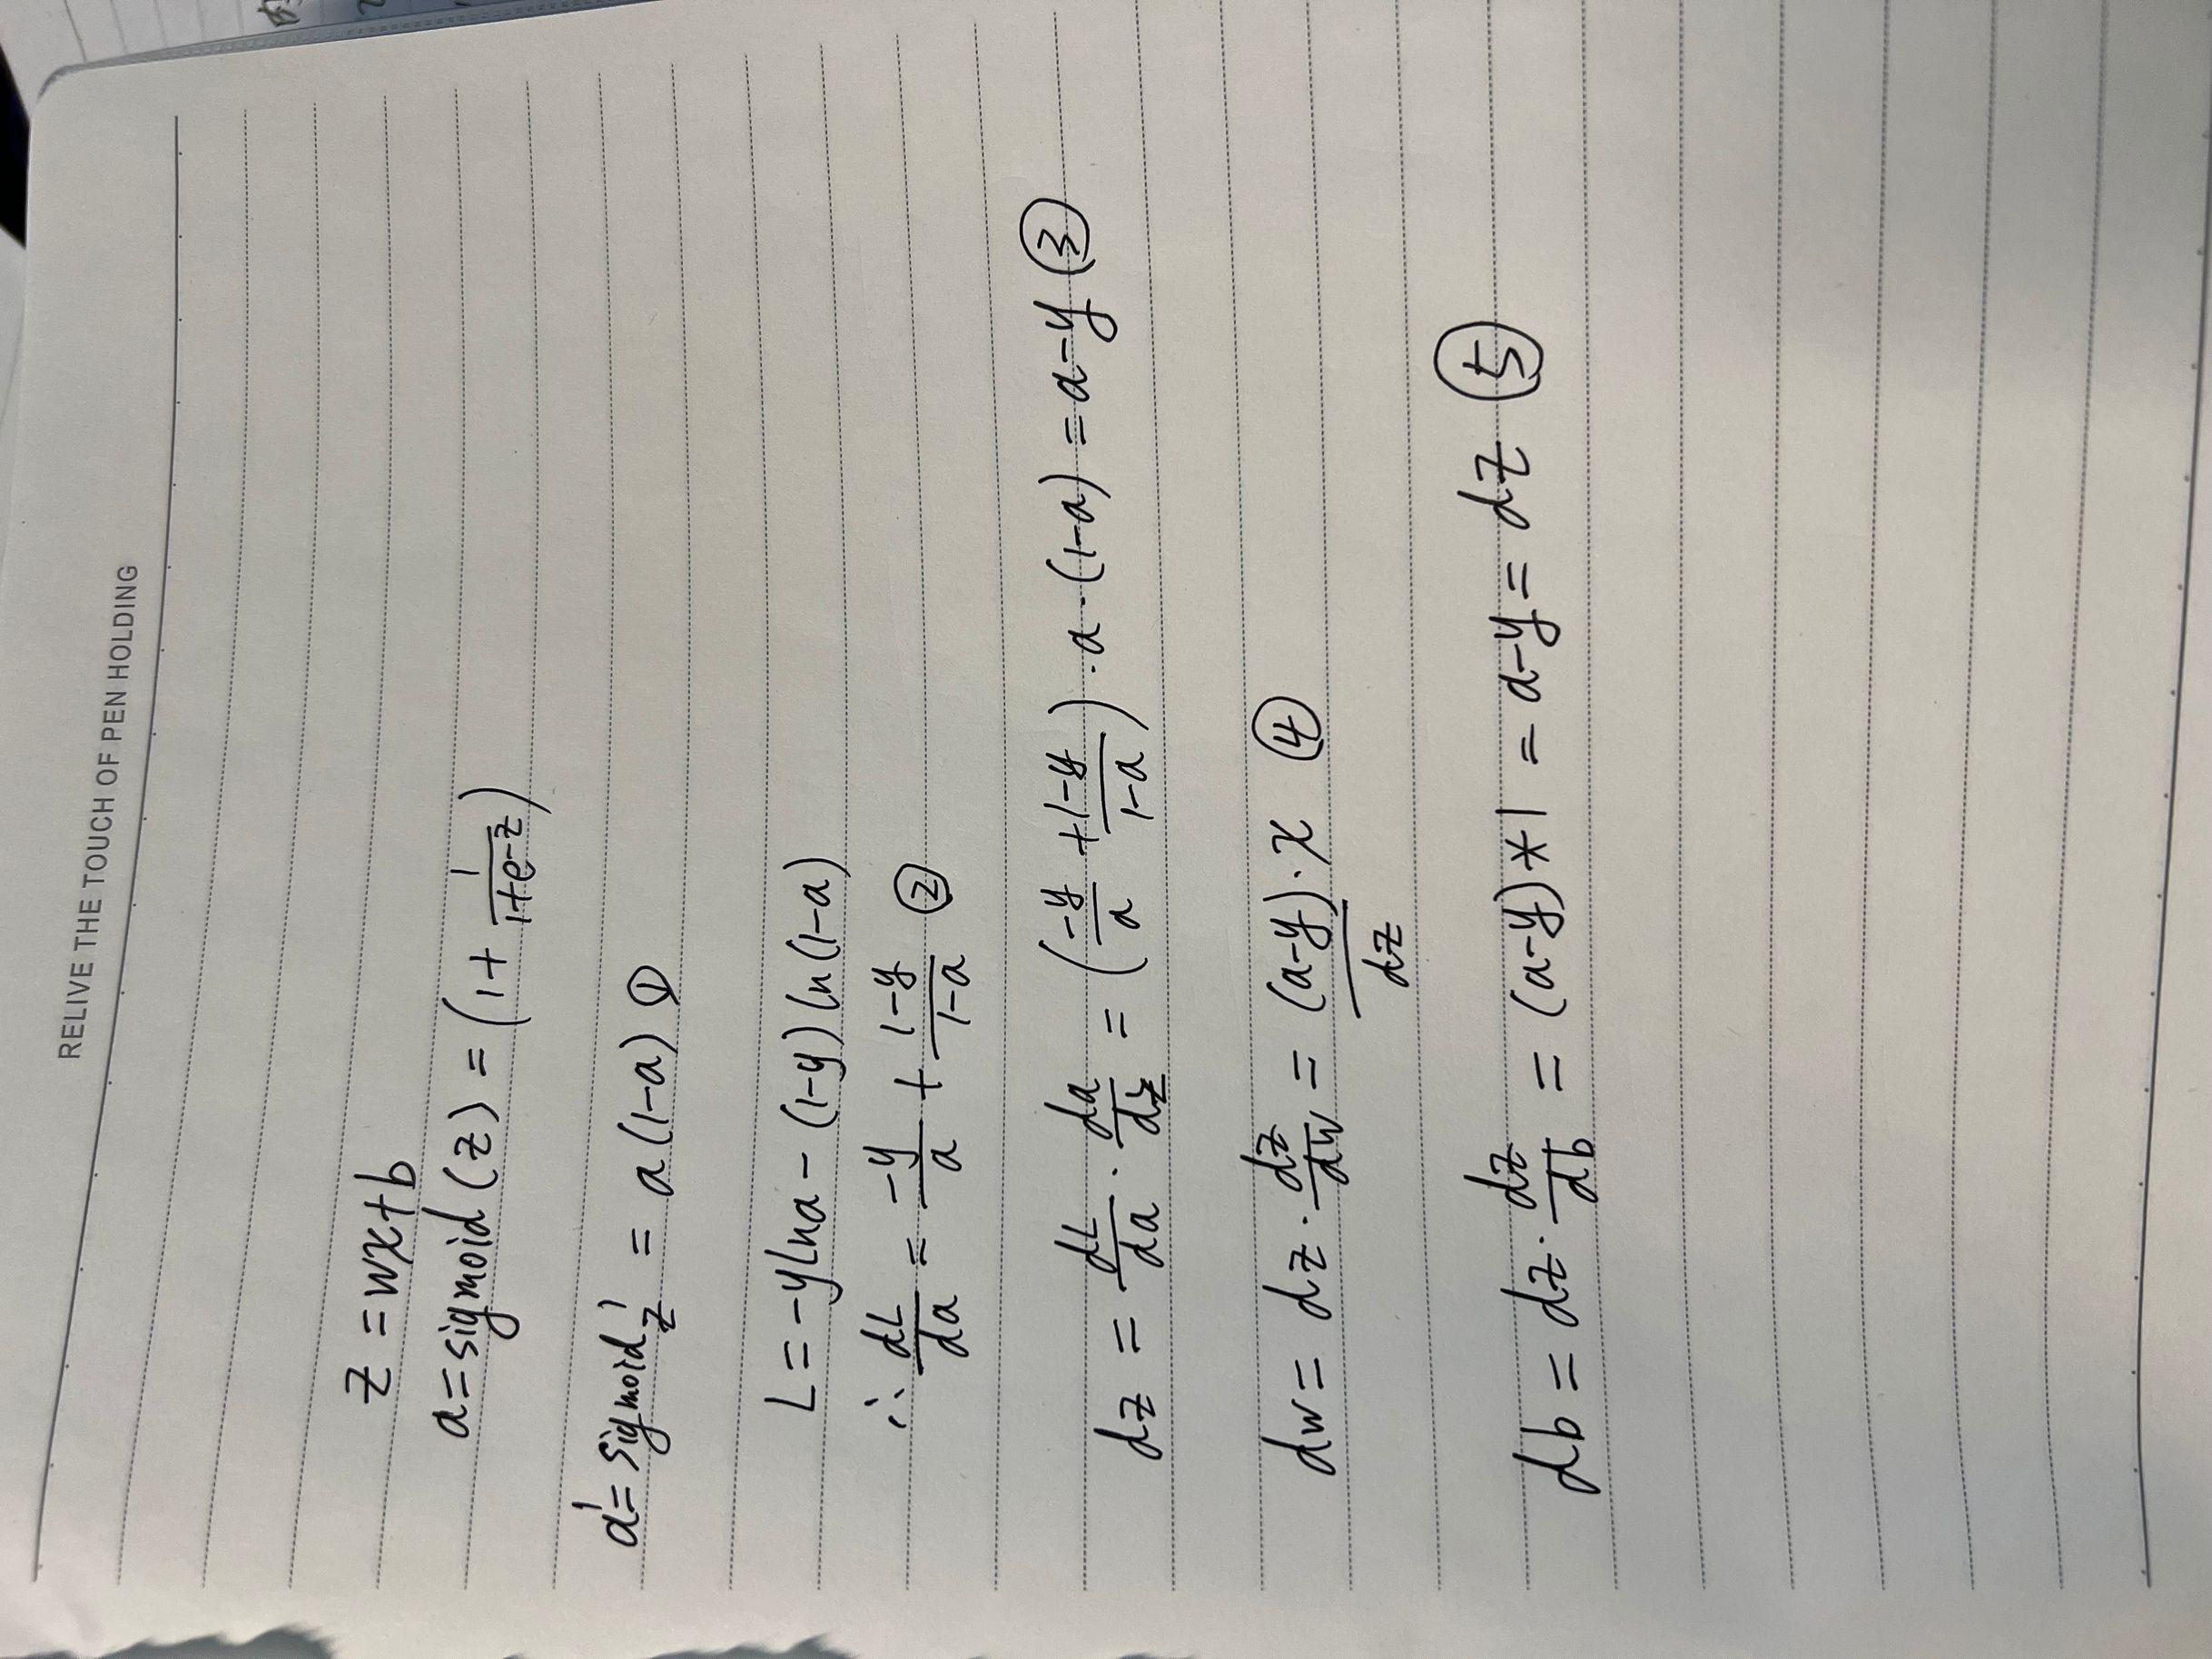 RELIVE THE TOUCH OF PEN HOLDING
z = wx+b
a = sigmoid(z) = (1 + 1/(1+e^-z))
a' = sigmoid'_z = a(1-a) ①
L = -ylna - (1-y)ln(1-a)
∴ dL/da = -y/a + (1-y)/(1-a) ②
dz = dL/da · da/dz = (-y/a + (1-y)/(1-a)) · a · (1-a) = a-y ③
dw = dz · dz/dw = (a-y) · x ④
dz
db = dz · dz/db = (a-y)*1 = a-y = dz ⑤